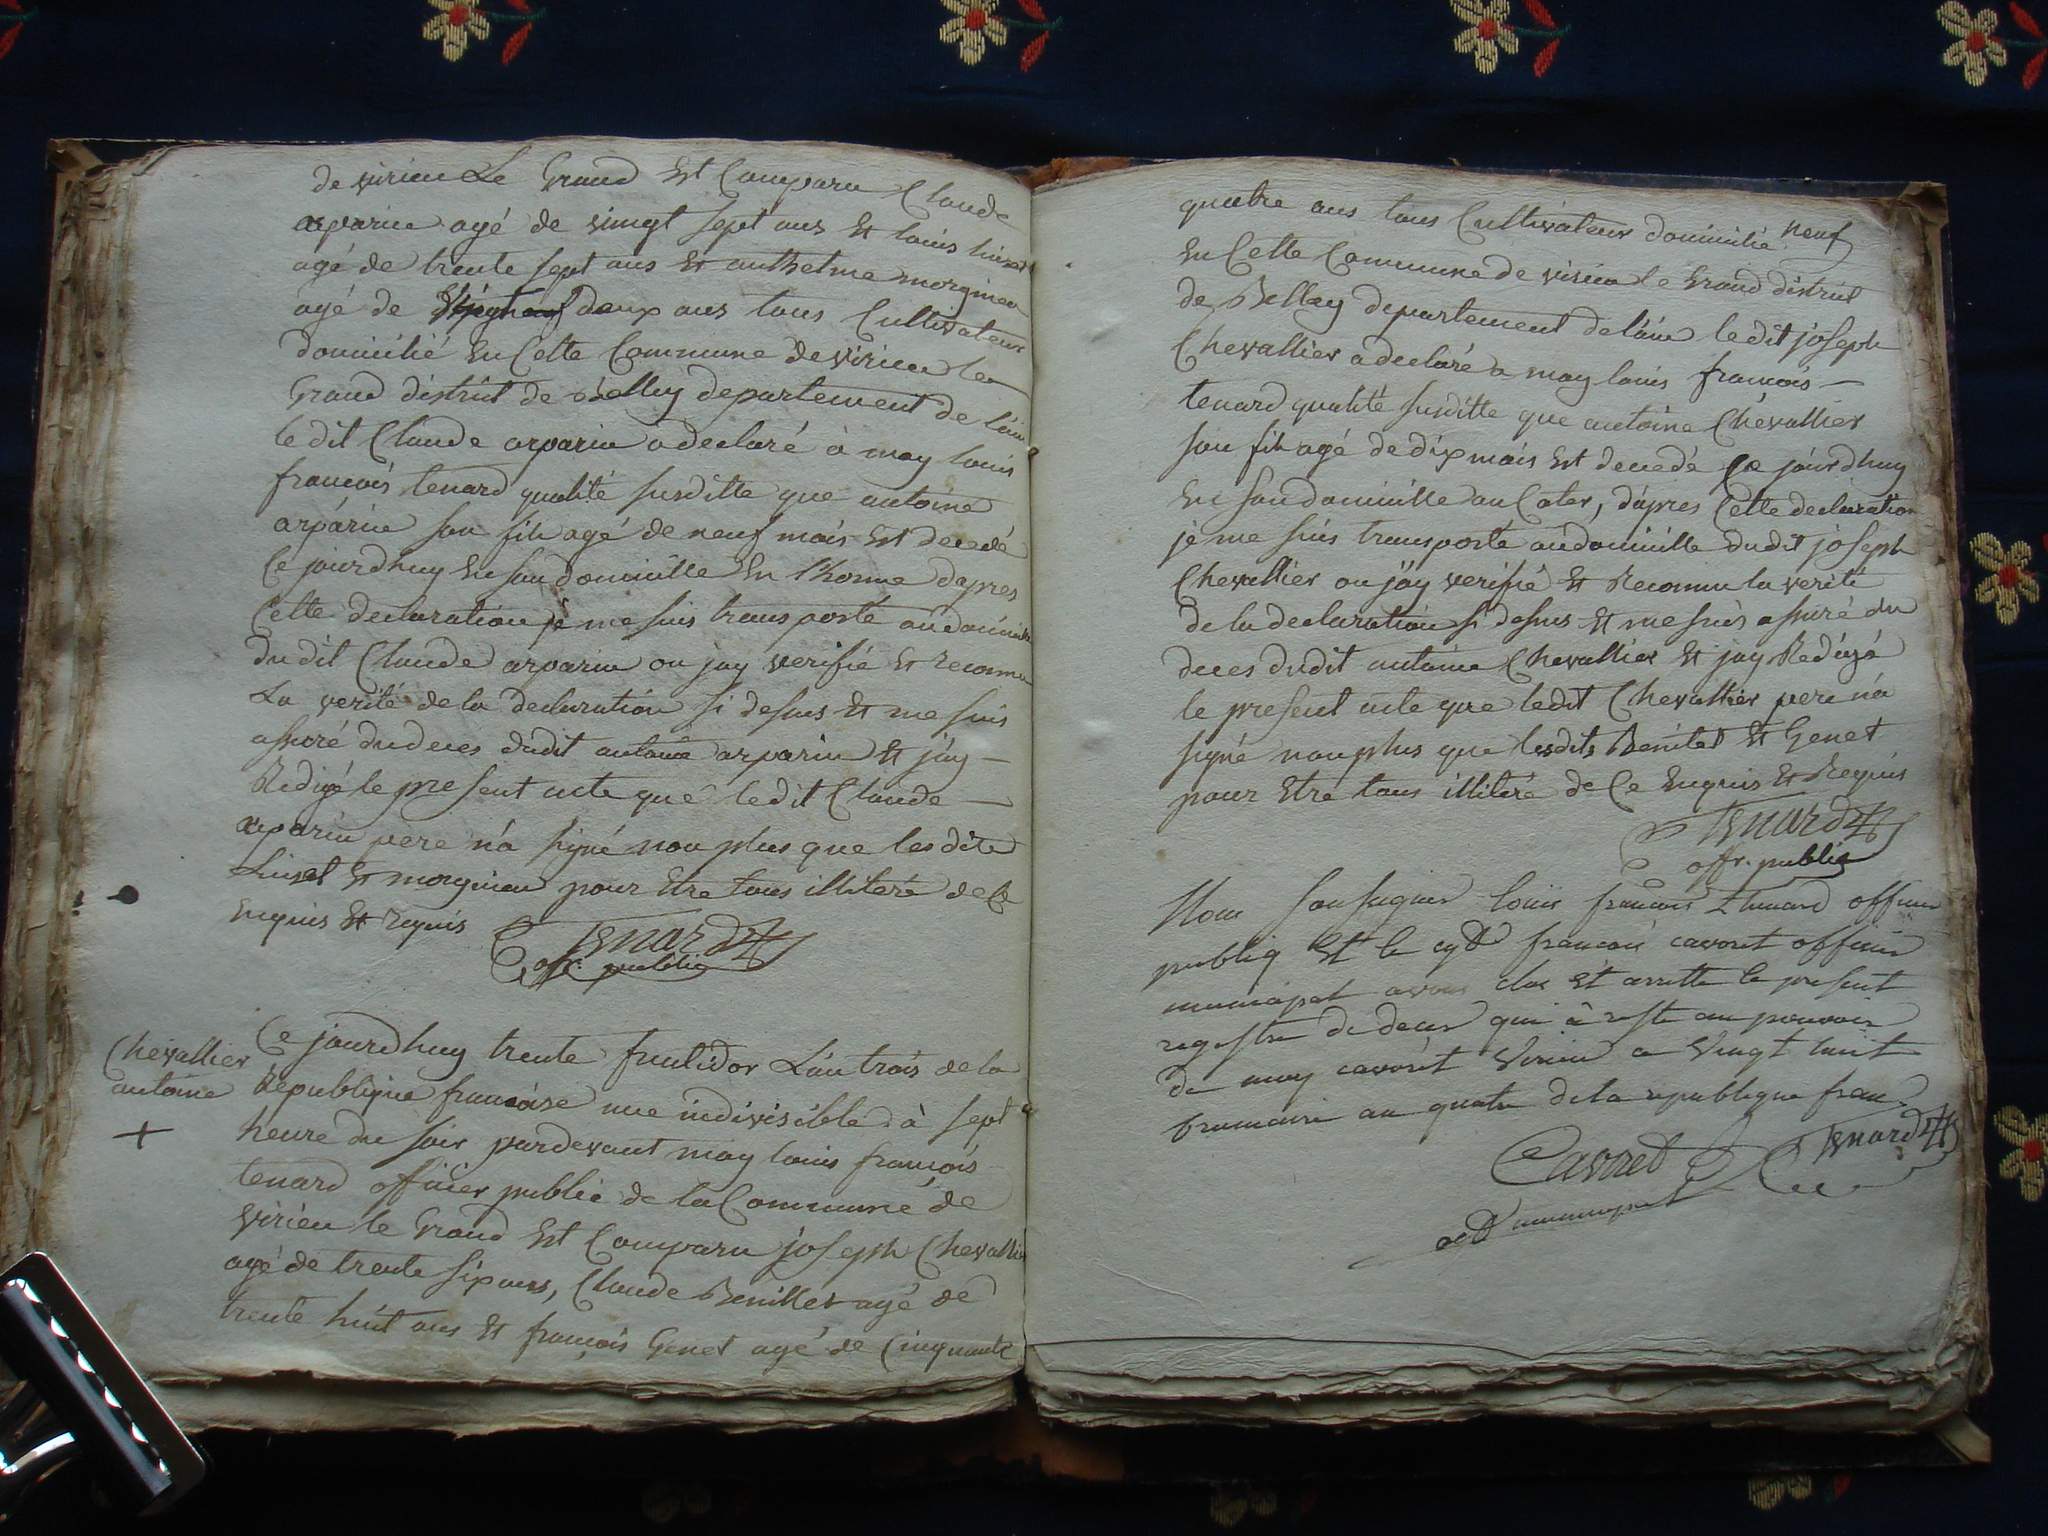 de virieu Le Grand Est Comparu Claude
arparin agé de vingt sept ans Et louis
agé de trente sept ans Et anthelme morginieu
agé de deux ans tous Cultivateur
domicilié En Cette Commune de virieu le
Grand district de Belley departement de l'ain
ledit Claude arparin a declaré à moy louis
francois tenard qualité susditte que antoine
arparin son fils agé de neuf mois Est decedé
Ce jourdhuy En son domicille En l'horme dapres
Cette declaration je me suis transporté au domicille
dudit Claude arparin ou jay verifié Et reconnu
La verité de la declaration si desus Et me suis
assuré du deces dudit antoine arparin Et j'ay
Redigé le present acte que ledit Claude
arparin pere n'a signé non plus que lesdits
Et morginieu pour Etre tous illiteré de Ce
Enquis Et requis
Tenard
offr. public
Chevallier
antoine
+
Ce jourdhuy trente fructidor L'an trois de la
Republique francoise une indivisible à sept
heure du soir pardevant moy louis francois
tenard officier public de la Commune de
virieu le Grand Est Comparu joseph Chevallier
agé de trente six ans, Claude Benillet agé de
trente huit ans Et francois Genet agé de Cinquante
neuf
quatre ans tous Cultivateur domicilié
En Cette Commune de virieu le Grand district
de Belley departement de l'ain ledit joseph
Chevallier a declaré a moy louis francois
tenard qualité susditte que antoine Chevallier
son fils agé de dix mois Est decedé Ce jourdhuy
En son domicille au Coter, dapres Cette declaration
je me suis transporté au domicille dudit joseph
Chevallier ou j'ay verifié Et Reconnu la verité
de la declaration si desus Et me suis assuré du
deces dudit antoine Chevallier Et jay Redigé
le present acte que ledit Chevallier pere n'a
signé non plus que lesdits Benilet Et Genet
pour Etre tous illiteré de Ce Enquis Et Requis
Tenard
offr. public
Nous sousigner louis francois Thenard officier
publiq Et le francois cavoret officier
municipal avons clos Et arretté le present
registre de deces qui à resté au pouvoir
de moy cavoret Virieu ce vingt huit
brumaire an quatre de la republique fran.
Cavoret Tenard
municipal